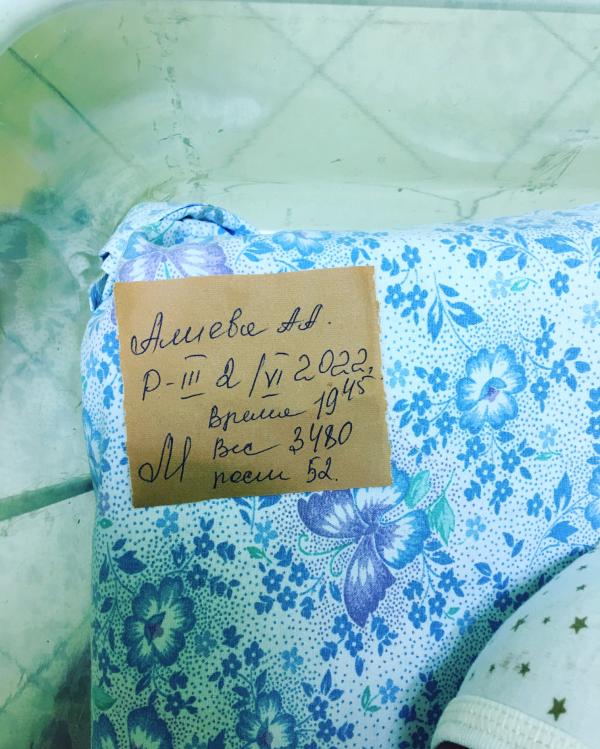 Алиева А А.
Р-III 2/VI 2022г.
Время 19 45
Вес 3480
М рост 52.